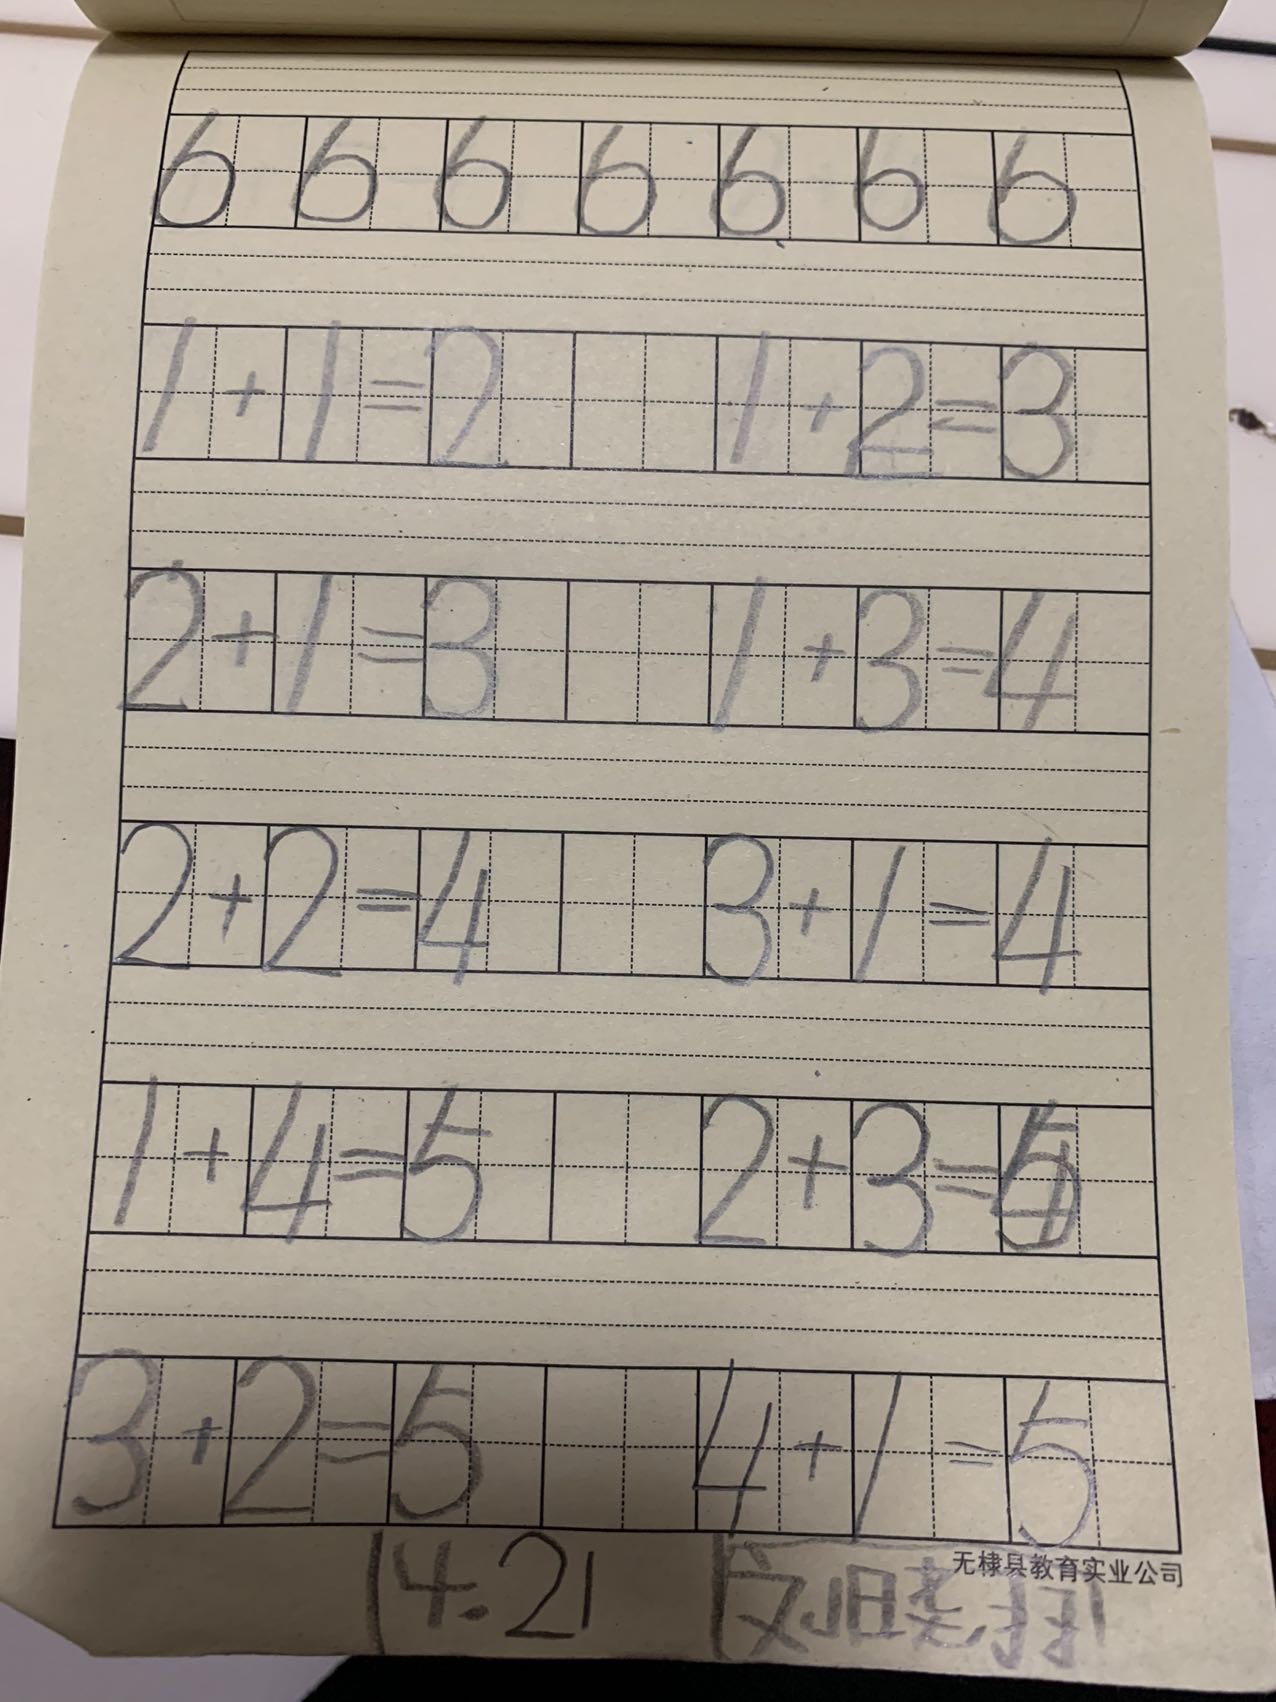 6 6 6 6 6 6 6
1+1=2 1+2=3
2+1=3 1+3=4
2+2=4 3+1=4
1+4=5 2+3=5
3+2=5 4+1=5
无棣县教育实业公司
4.21